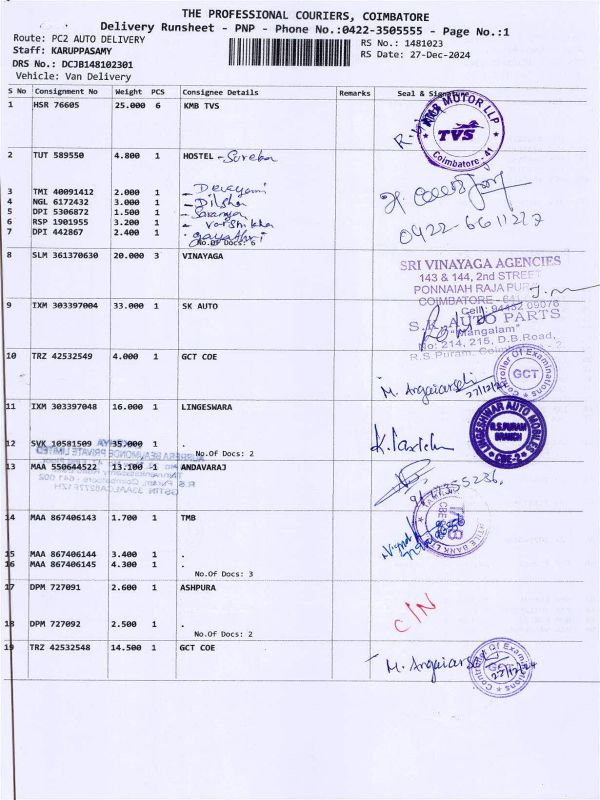 THE PROFESSIONAL COURIERS, COIMBATORE
Delivery Runsheet - PNP - Phone No.:0422-3505555 - Page No.:1
Route: PC2 AUTO DELIVERY
RS No.: 1481023
Staff: KARUPPASAMY
RS Date: 27-Dec-2024
DRS No.: DCJB148102301
Vehicle: Van Delivery
S No Consignment No Weight PCS Consignee Details Remarks Seal & Signature
1 HSR 76605 25.000 6 KMB TVS
MOTOR LLP
TVS
Coimbatore - 41
2 TUT 589550 4.800 1 HOSTEL - Sureka
3 TMI 40091412 2.000 1
4 NGL 6172432 3.000 1 - Dilsha
5 DPI 5306872 1.500 1 - Saranya
6 RSP 1901955 3.200 1 - Varshikha
7 DPI 442867 2.400 1 - Gayathri
No.Of Docs: 6
0422-6611227
8 SLM 361370630 20.000 3 VINAYAGA
SRI VINAYAGA AGENCIES
143 & 144, 2nd STREET
PONNAIAH RAJA PUR
COIMBATORE - 641
Cell: 94432 09076
9 IXM 303397004 33.000 1 SK AUTO
S.K. AUTO PARTS
"Mangalam"
No: 214, 215, D.B.Road,
R.S.Puram, Coimbatore - 2
10 TRZ 42532549 4.000 1 GCT COE
Controller Of Examinations
GCT
M. Angaiarselvi
27/12/24
11 IXM 303397048 16.000 1 LINGESWARA
LINGESHWAR AUTO MOBILES
R.S.PURAM
BRANCH
CBE-2
12 SVK 10581509 35.000 1 .
No.Of Docs: 2
13 MAA 550644522 13.100 1 ANDAVARAJ
14 MAA 867406143 1.700 1 TMB
15 MAA 867406144 3.400 1 .
16 MAA 867406145 4.300 1 .
No.Of Docs: 3
17 DPM 727091 2.600 1 ASHPURA
C/N
18 DPM 727092 2.500 1 .
No.Of Docs: 2
19 TRZ 42532548 14.500 1 GCT COE
Controller Of Examinations
GCT
M. Angaiarselvi
27/12/24